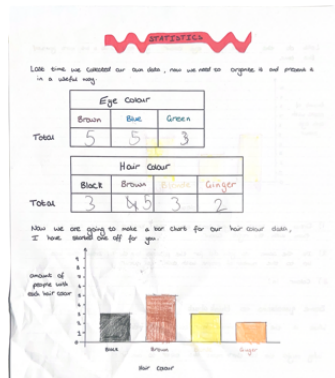 STATISTICS
Last time we collected our own data, now we need to organise it and present it
in a useful way.
Eye Colour
Brown Blue Green
Total 5 5 3
Hair Colour
Black Brown Blonde Ginger
Total 3 5 3 2
Now we are going to make a bar chart for our hair colour data,
I have started one off for you.
amount of
people with
each hair colour
Black Brown Ginger
Hair Colour